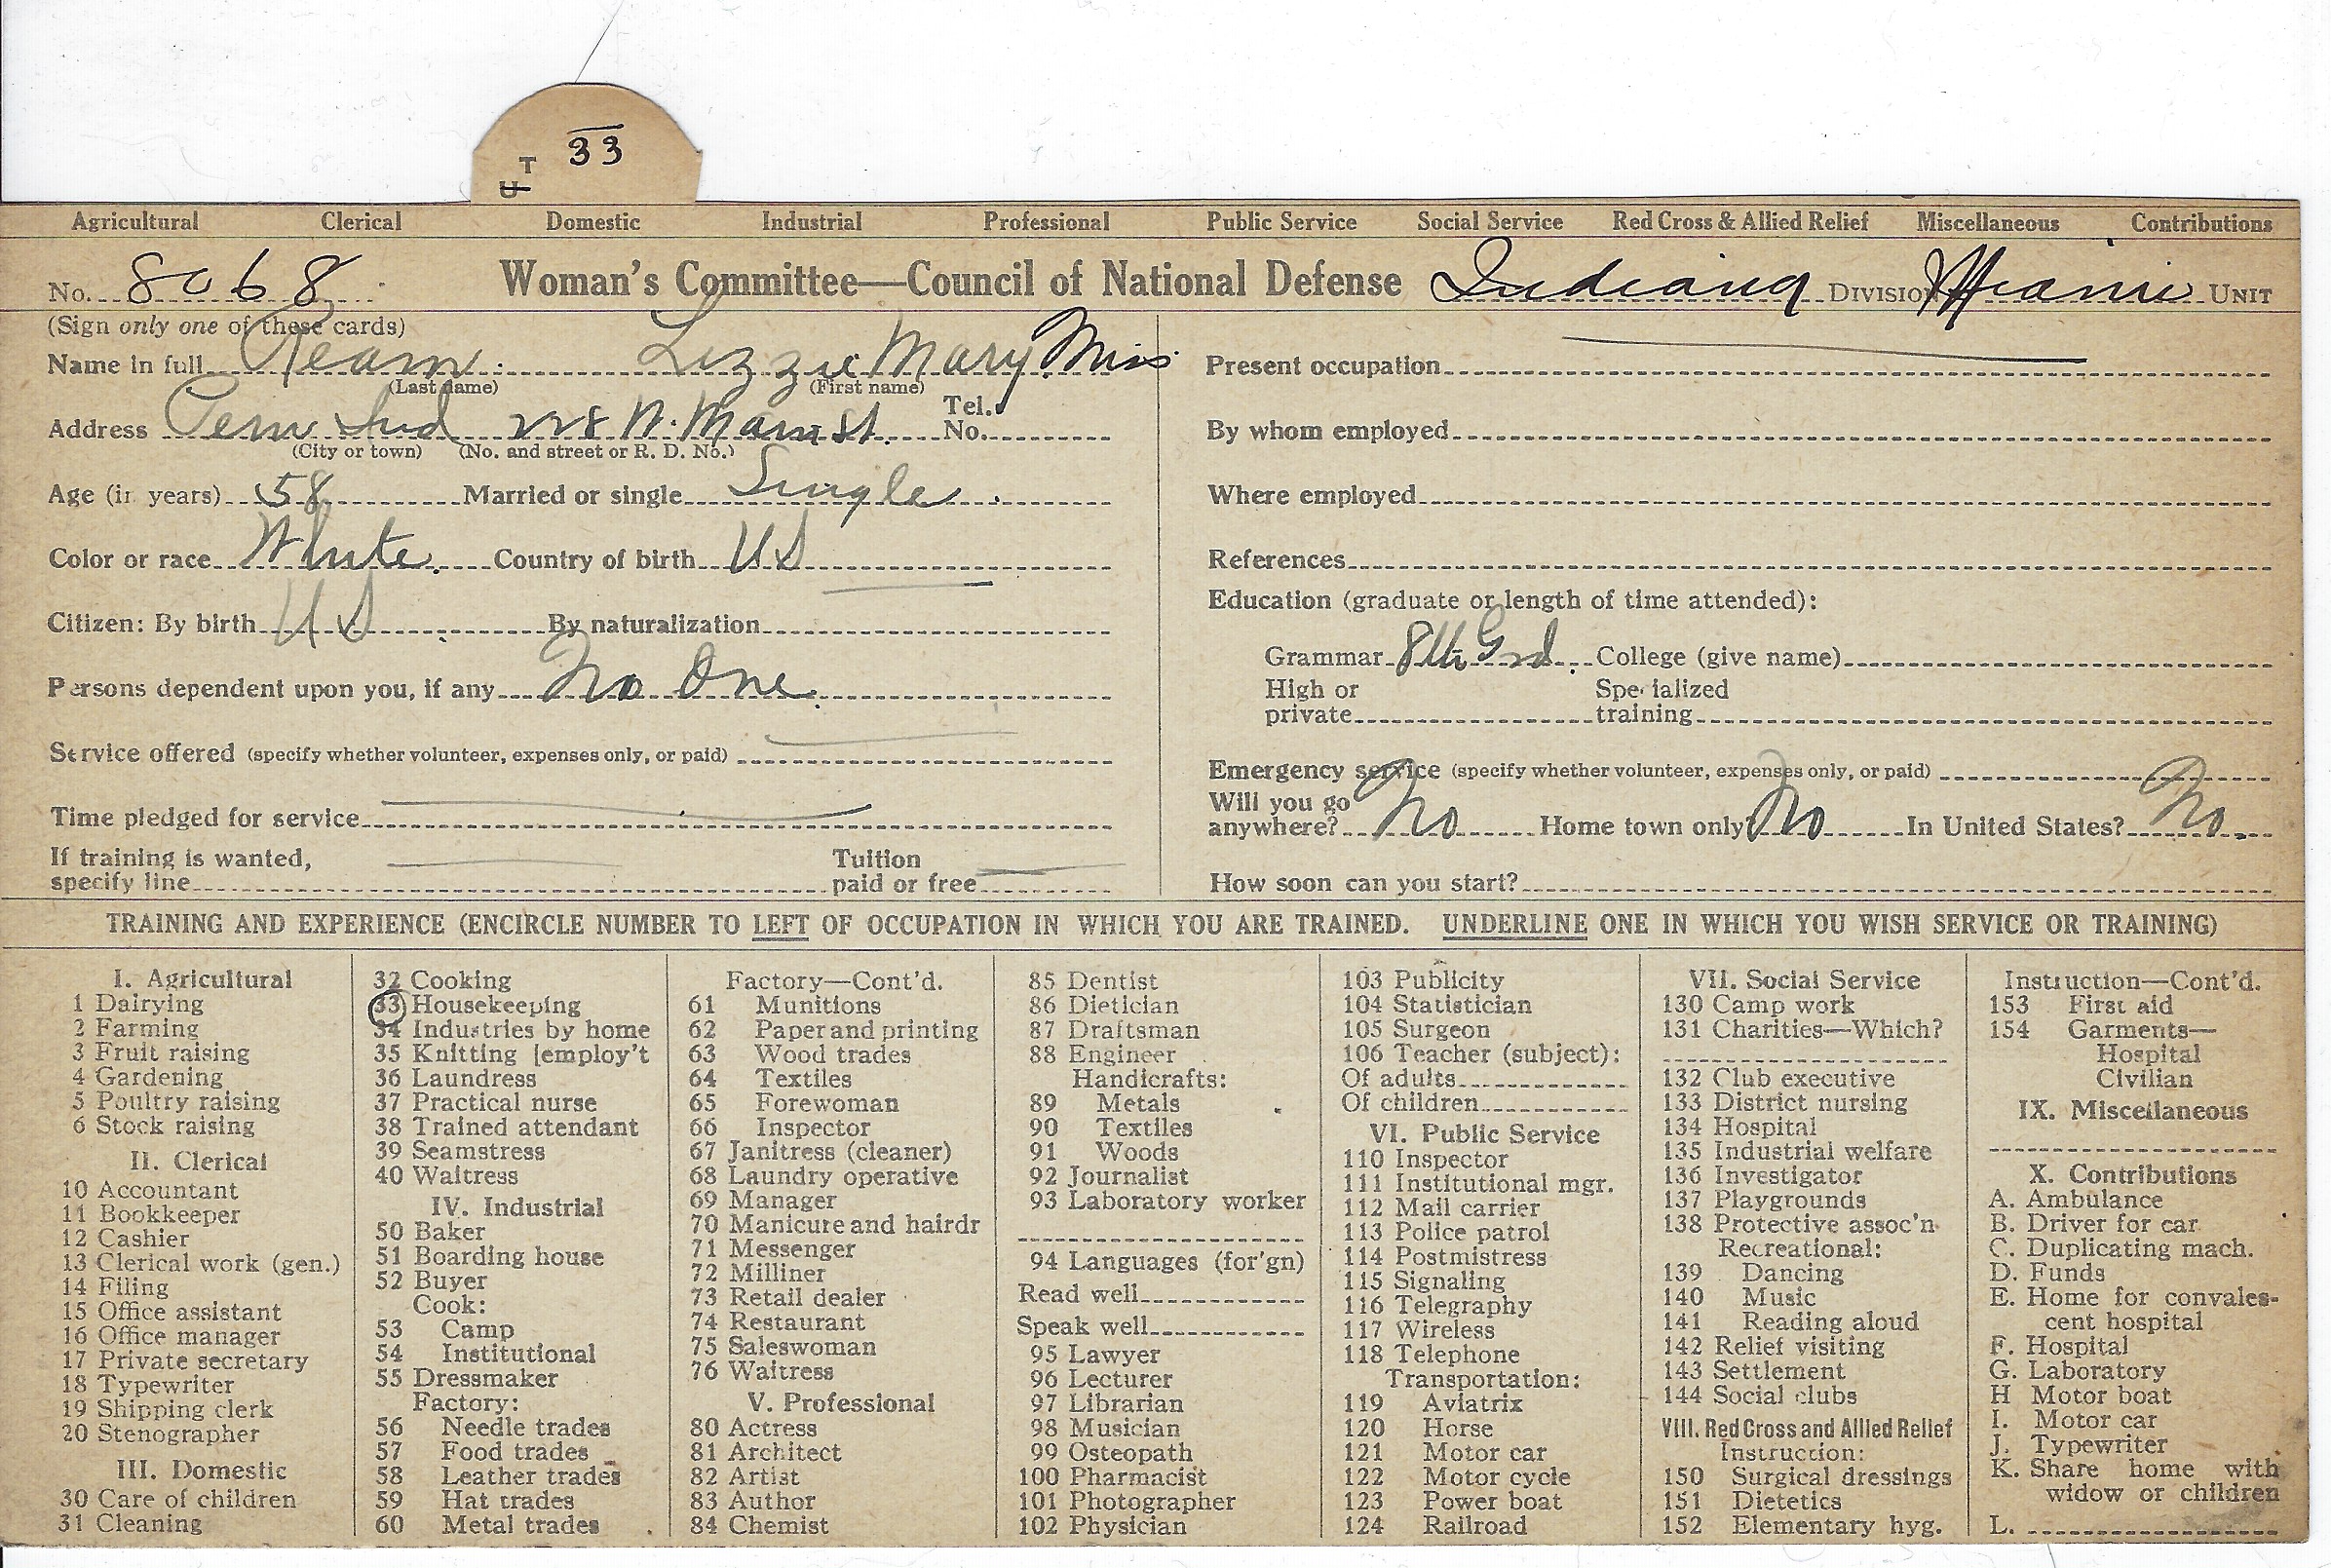 33
T
U
Agricultural Clerical Domestic Industrial Professional Public Service Social Service Red Cross & Allied Relief Miscellaneous Contributions
No. 8068 Woman's Committee—Council of National Defense Indiana DIVISION Miami UNIT
(Sign only one of these cards)
Name in full Ream Lizzie Mary Miss
(Last name) (First name)
Address Peru Ind 228 N. Main St. Tel. No.
(City or town) (No. and street or R. D. No.)
Age (in years) 58 Married or single Single
Color or race White. Country of birth US
Citizen: By birth US By naturalization
Persons dependent upon you, if any No One
Service offered (specify whether volunteer, expenses only, or paid)
Time pledged for service
If training is wanted,
specify line Tuition paid or free
Present occupation
By whom employed
Where employed
References
Education (graduate or length of time attended):
Grammar 8th Grd. College (give name)
High or private Specialized training
Emergency service (specify whether volunteer, expenses only, or paid)
Will you go anywhere? No Home town only? No In United States? No.
How soon can you start?
TRAINING AND EXPERIENCE (ENCIRCLE NUMBER TO LEFT OF OCCUPATION IN WHICH YOU ARE TRAINED. UNDERLINE ONE IN WHICH YOU WISH SERVICE OR TRAINING)
I. Agricultural
1 Dairying
2 Farming
3 Fruit raising
4 Gardening
5 Poultry raising
6 Stock raising
II. Clerical
10 Accountant
11 Bookkeeper
12 Cashier
13 Clerical work (gen.)
14 Filing
15 Office assistant
16 Office manager
17 Private secretary
18 Typewriter
19 Shipping clerk
20 Stenographer
III. Domestic
30 Care of children
31 Cleaning
32 Cooking
33 Housekeeping
34 Industries by home
35 Knitting [employ't
36 Laundress
37 Practical nurse
38 Trained attendant
39 Seamstress
40 Waitress
IV. Industrial
50 Baker
51 Boarding house
52 Buyer
Cook:
53 Camp
54 Institutional
55 Dressmaker
Factory:
56 Needle trades
57 Food trades
58 Leather trades
59 Hat trades
60 Metal trades
Factory—Cont'd.
61 Munitions
62 Paper and printing
63 Wood trades
64 Textiles
65 Forewoman
66 Inspector
67 Janitress (cleaner)
68 Laundry operative
69 Manager
70 Manicure and hairdr
71 Messenger
72 Milliner
73 Retail dealer
74 Restaurant
75 Saleswoman
76 Waitress
V. Professional
80 Actress
81 Architect
82 Artist
83 Author
84 Chemist
85 Dentist
86 Dietician
87 Draftsman
88 Engineer
Handicrafts:
89 Metals
90 Textiles
91 Woods
92 Journalist
93 Laboratory worker
94 Languages (for'gn)
Read well
Speak well
95 Lawyer
96 Lecturer
97 Librarian
98 Musician
99 Osteopath
100 Pharmacist
101 Photographer
102 Physician
103 Publicity
104 Statistician
105 Surgeon
106 Teacher (subject):
Of adults
Of children
VI. Public Service
110 Inspector
111 Institutional mgr.
112 Mail carrier
113 Police patrol
114 Postmistress
115 Signaling
116 Telegraphy
117 Wireless
118 Telephone
Transportation:
119 Aviatrix
120 Horse
121 Motor car
122 Motor cycle
123 Power boat
124 Railroad
VII. Social Service
130 Camp work
131 Charities—Which?
132 Club executive
133 District nursing
134 Hospital
135 Industrial welfare
136 Investigator
137 Playgrounds
138 Protective assoc'n
Recreational:
139 Dancing
140 Music
141 Reading aloud
142 Relief visiting
143 Settlement
144 Social clubs
VIII. Red Cross and Allied Relief
Instruction:
150 Surgical dressings
151 Dietetics
152 Elementary hyg.
Instruction—Cont'd.
153 First aid
154 Garments—
Hospital
Civilian
IX. Miscellaneous
X. Contributions
A. Ambulance
B. Driver for car
C. Duplicating mach.
D. Funds
E. Home for convales-
cent hospital
F. Hospital
G. Laboratory
H Motor boat
I. Motor car
J. Typewriter
K. Share home with
widow or children
L.